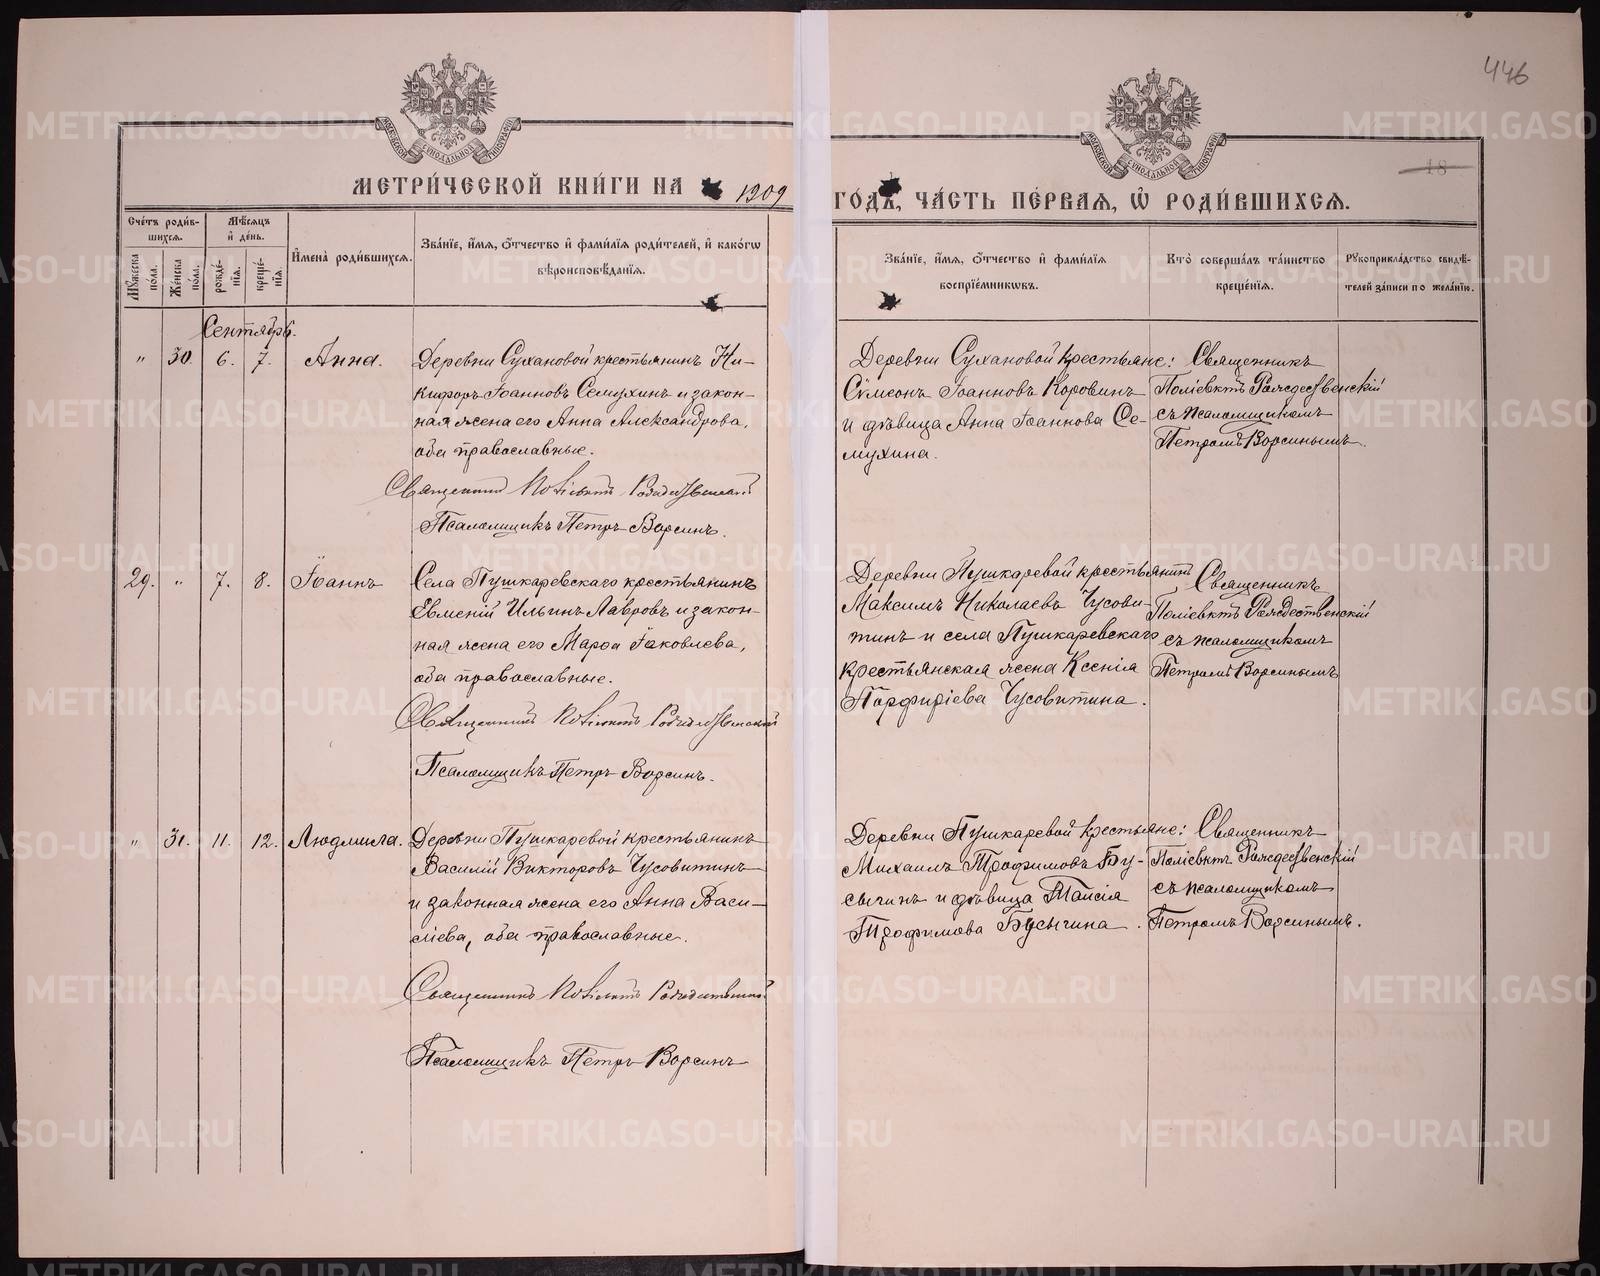 446
МОСКОВСКОЙ СѴНОДАЛЬНОЙ ТИПОГРАФІИ
МОСКОВСКОЙ СѴНОДАЛЬНОЙ ТИПОГРАФІИ
18
МЕТРИ́ЧЕСКОЙ КНИ́ГИ НА 1909
ГОДЪ, ЧА́СТЬ ПЕ́РВАЯ, Ѽ РОДИ́ВШИХСЯ.
Сче́тъ роди́в-
шихся.
Мꙋ́жеска по́ла.
Же́нска по́ла.
Мѣ́сяцъ
и҆ де́нь.
рожде́-
нїя.
креще́-
нїя.
И҆мена̀ роди́вшихся.
Зва́нїе, и҆́мя, ѻ҆́тчество и҆ фами́лїя роди́телей, и҆ како́гѡ
вѣроисповѣ́данїя.
Зва́нїе, и҆́мя, ѻ҆́тчество и҆ фами́лїя
воспрїе́мникѡвъ.
Кто̀ соверша́лъ та́инство
креще́нїя.
Рꙋкоприкла́дство свидѣ́-
телей за́писи по жела́нїю.
Сентябрь.
" 30. 6. 7. Анна.
Деревни Сухановой крестьянинъ Ни-
кифоръ Іоанновъ Семухинъ и закон-
ная жена его Анна Александрова,
оба православные.
Священникъ Поліевктъ Рождественскій
Псаломщикъ Петръ Ворсинъ.
Деревни Сухановой крестьяне:
Сѵмеонъ Іоанновъ Коровинъ
и дѣвица Анна Іоаннова Се-
мухина.
Священникъ
Поліевктъ Рождественскій
съ псаломщикомъ
Петромъ Ворсинымъ.
29. " 7. 8. Іоаннъ
Села Пушкаревскаго крестьянинъ
Евменій Ильинъ Лавровъ и закон-
ная жена его Марѳа Іаковлева,
оба православные.
Священникъ Поліевктъ Рождественскій
Псаломщикъ Петръ Ворсинъ.
Деревни Пушкаревой крестьянинъ
Максимъ Николаевъ Чусови-
тинъ и села Пушкаревскаго
крестьянская жена Ксенія
Порфиріева Чусовитина.
Священникъ
Поліевктъ Рождественскій
съ псаломщикомъ
Петромъ Ворсинымъ
" 31. 11. 12. Людмила.
Деревни Пушкаревой крестьянинъ
Василій Викторовъ Чусовитинъ
и законная жена его Анна Васи-
ліева, оба православные.
Священникъ Поліевктъ Рождественскій
Псаломщикъ Петръ Ворсинъ
Деревни Пушкаревой крестьяне:
Михаилъ Трофимовъ Бу-
сыгинъ и дѣвица Таисія
Трофимова Бусыгина.
Священникъ
Поліевктъ Рождественскій
съ псаломщикомъ
Петромъ Ворсинымъ.
METRIKI.GASO-URAL.RU